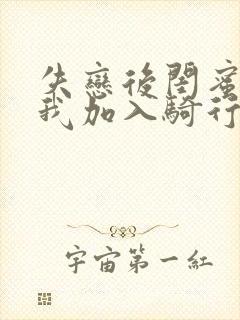 失戀後閨蜜
我加入騎行
宇宙第一紅